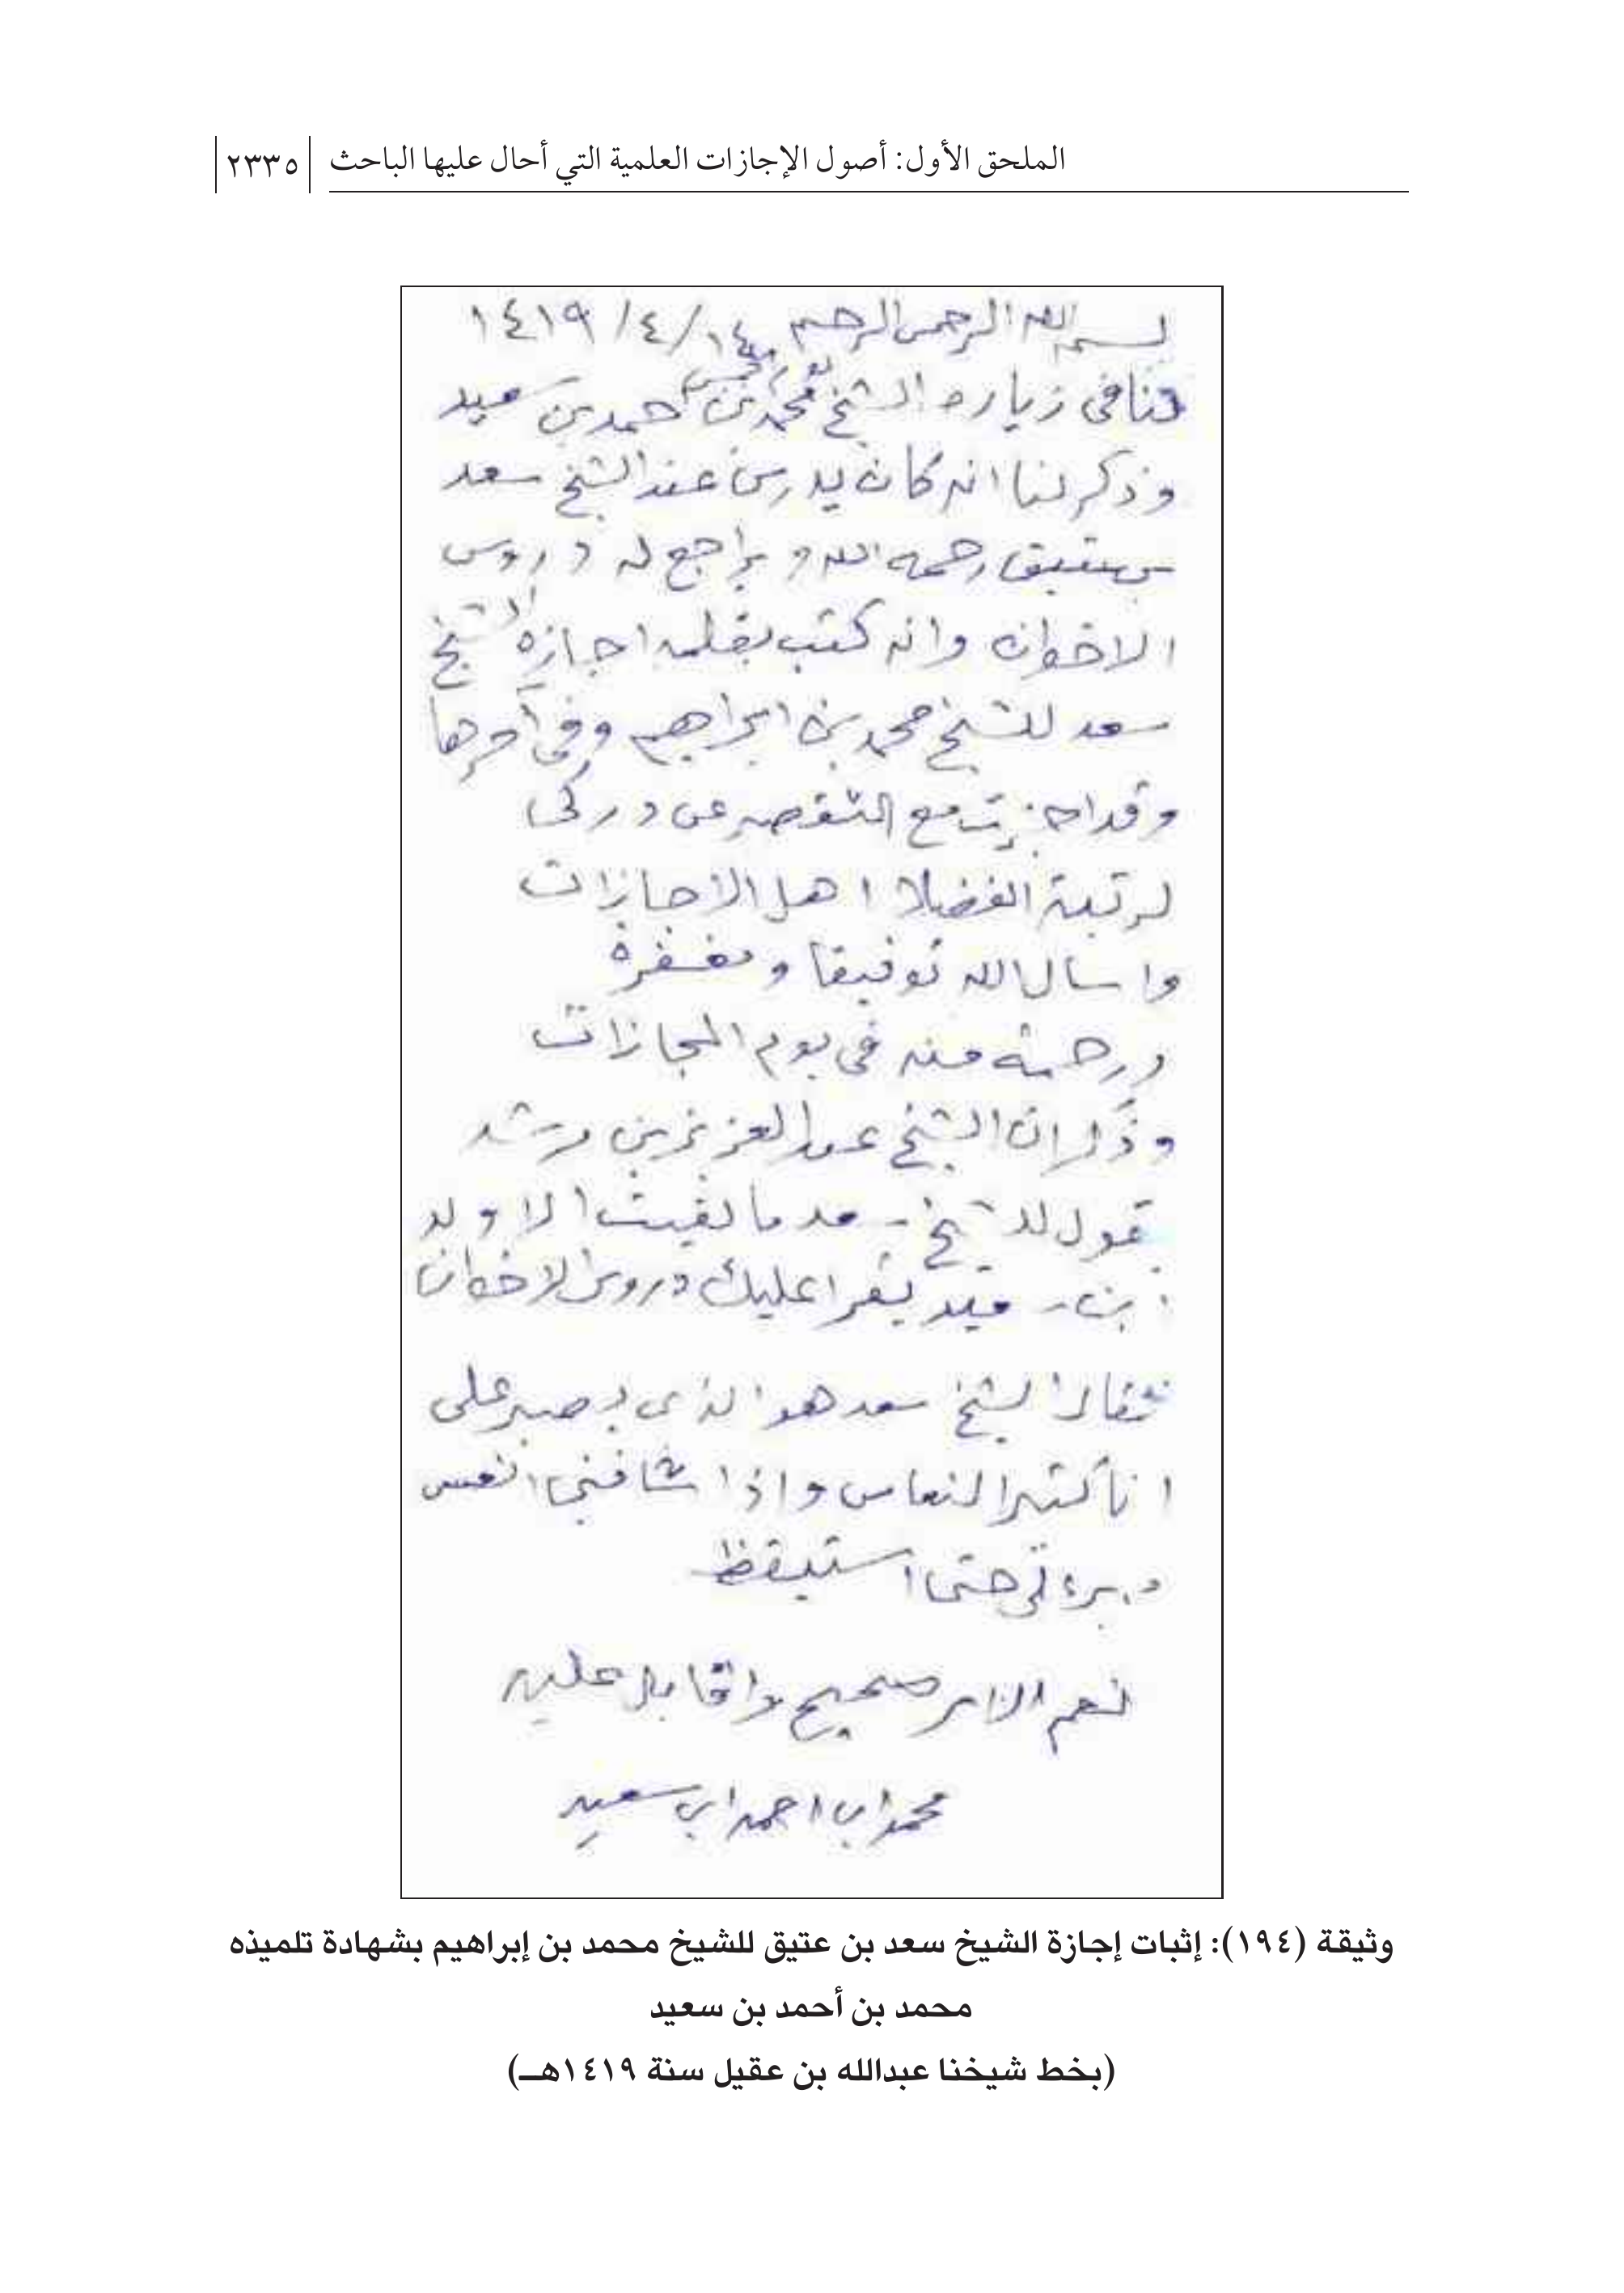 الملحق الأول: أصول الإجازات العلمية التي أحال عليها الباحث ٢٣٣٥
بسم الله الرحمن الرحيم ١٤/ ٤/ ١٤١٩
كنا في زيارة الشيخ محمد بن احمد بن سعيد
وذكر لنا انه كان يدرس عند الشيخ سعد
بن عتيق رحمه الله و يراجع له دروس
الاخوان وانه كتب بقلمه اجازة الشيخ
سعد للشيخ محمد بن ابراهيم وفي آخرها
وقد اجزت مع التقصير عن دركي
لرتبة الفضلا اهل الاجازات
واسال الله توفيقا ومغفرة
ورحمة منه في يوم المجازات
وذكر ان الشيخ عبد العزيز بن مرشد
يقول للشيخ سعد ما لقيت الا ولد
ابن يقرا عليك دروس الاخوان
فقال الشيخ سعد هو الذي يصبر علي
انا كثير النعاس واذا شافني انعس
حتى استيقظ
نعم الامر صحيح علي
محمد ابن احمد ابن سعيد
وثيقة (١٩٤): إثبات إجازة الشيخ سعد بن عتيق للشيخ محمد بن إبراهيم بشهادة تلميذه
محمد بن أحمد بن سعيد
(بخط شيخنا عبدالله بن عقيل سنة ١٤١٩هـ)